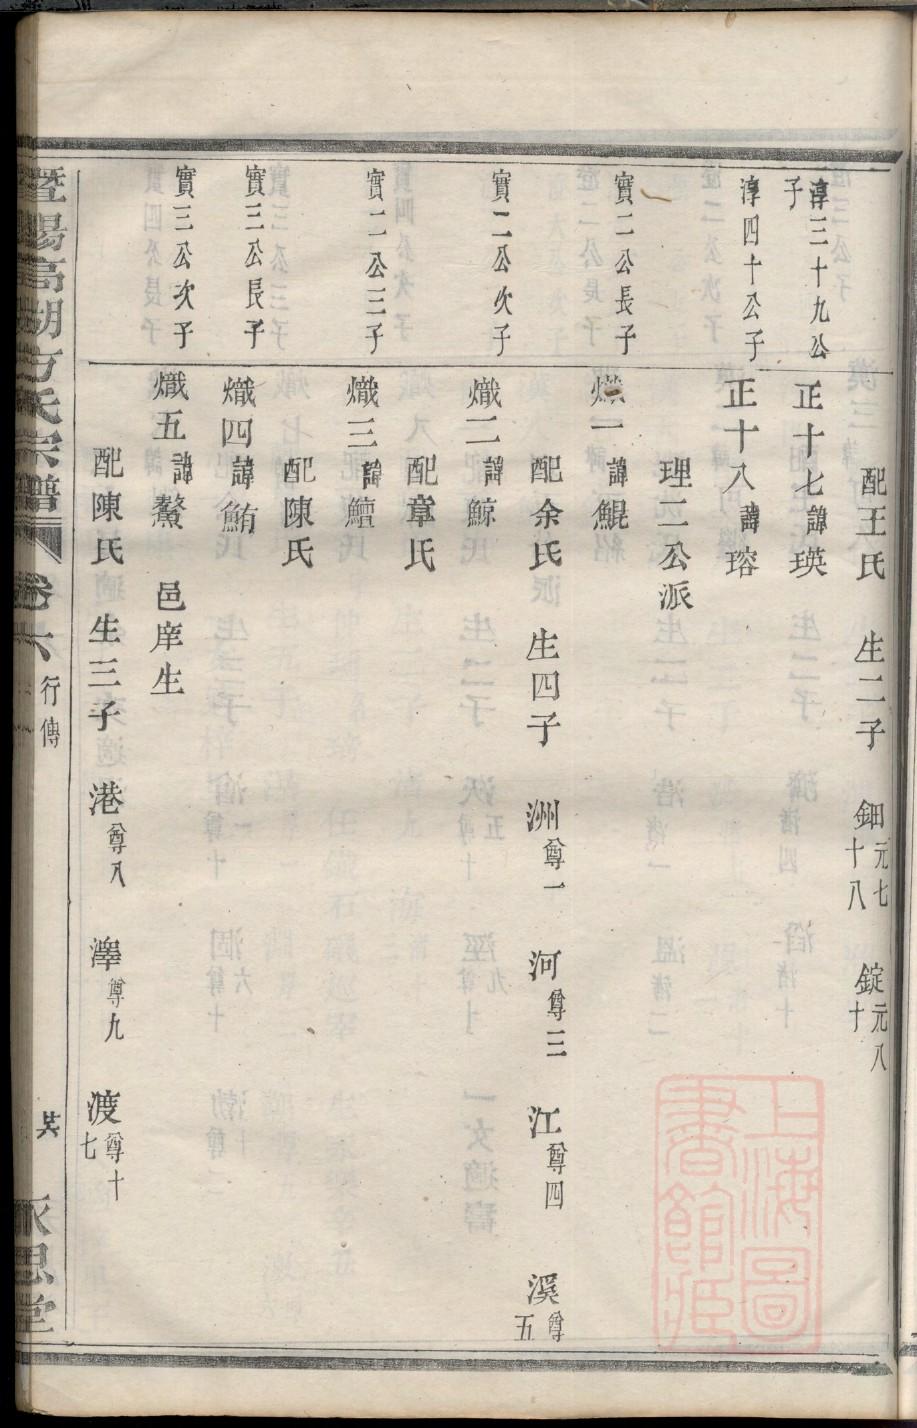 配王氏 生二子 鈿元七十八 錠元八十
淳三十九公子 正十七諱瑛
淳四十公子 正十八諱瑢
理二公派
實二公長子 熾一諱鯤
配余氏 生四子 洲尊一 河尊三 江尊四 溪尊五
實二公次子 熾二諱鯨
配章氏
實二公三子 熾三諱鱣
配陳氏
實三公長子 熾四諱鮪
實三公次子 熾五諱鰲 邑庠生
配陳氏 生三子 港尊八 澤尊九 渡尊十七
暨陽高湖方氏宗譜 卷六 行傳 永思堂
上海圖書館藏